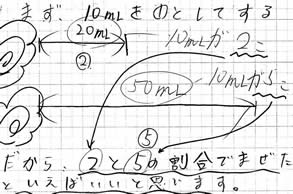 まず、10mLをめとしてする
20mL
10mLが2こ
②
50mL
10mLが5こ
⑤
だから、2と5の割合でまぜた
といえばいいと思います。